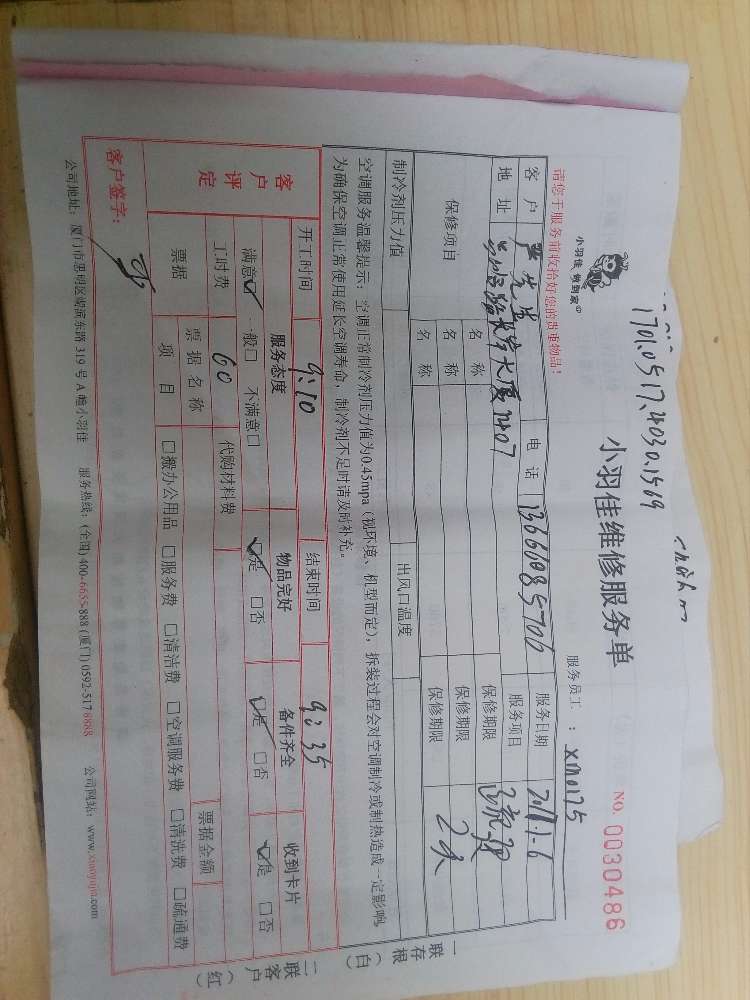 1701.0517.4030.1569
小羽佳 做到家®
小羽佳维修服务单
NO. 0030486
服务员工 : xm0175
请您于服务前收拾好您的贵重物品!
客 户 严先生 电 话 13666085706 服务日期
地 址 长宇大厦2407 服务项目
保修项目 名 称 保修期限
名 称 保修期限 2次
名 称 保修期限
制冷剂压力值 出风口温度
空调服务温馨提示:空调正常制冷剂压力值为0.45mpa(视环境、机型而定),拆装过程会对空调制冷或制热造成一定影响
为确保空调正常使用延长空调寿命,制冷剂不足时请及时补充。
开工时间 9:10 结束时间 9:35
客户评定 服务态度 物品完好 备件齐全 收到卡片
满意☑ 一般□ 不满意□ ☑是 □否 ☑是 □否 ☑是 □否
工时费 60 代购材料费
票据 票据名称 票据金额
项 目 □搬办公用品 □服务费 □清洁费 □空调服务费 □清洗费 □疏通费
客户签字:
公司地址: 厦门市思明区湖滨东路 319 号 A 幢小羽佳 服务热线: (全国) 400-6655-888 (厦门) 0592-517 8888 公司网站: www.xiaoyujia.com
一联存根(白)
二联客户(红)